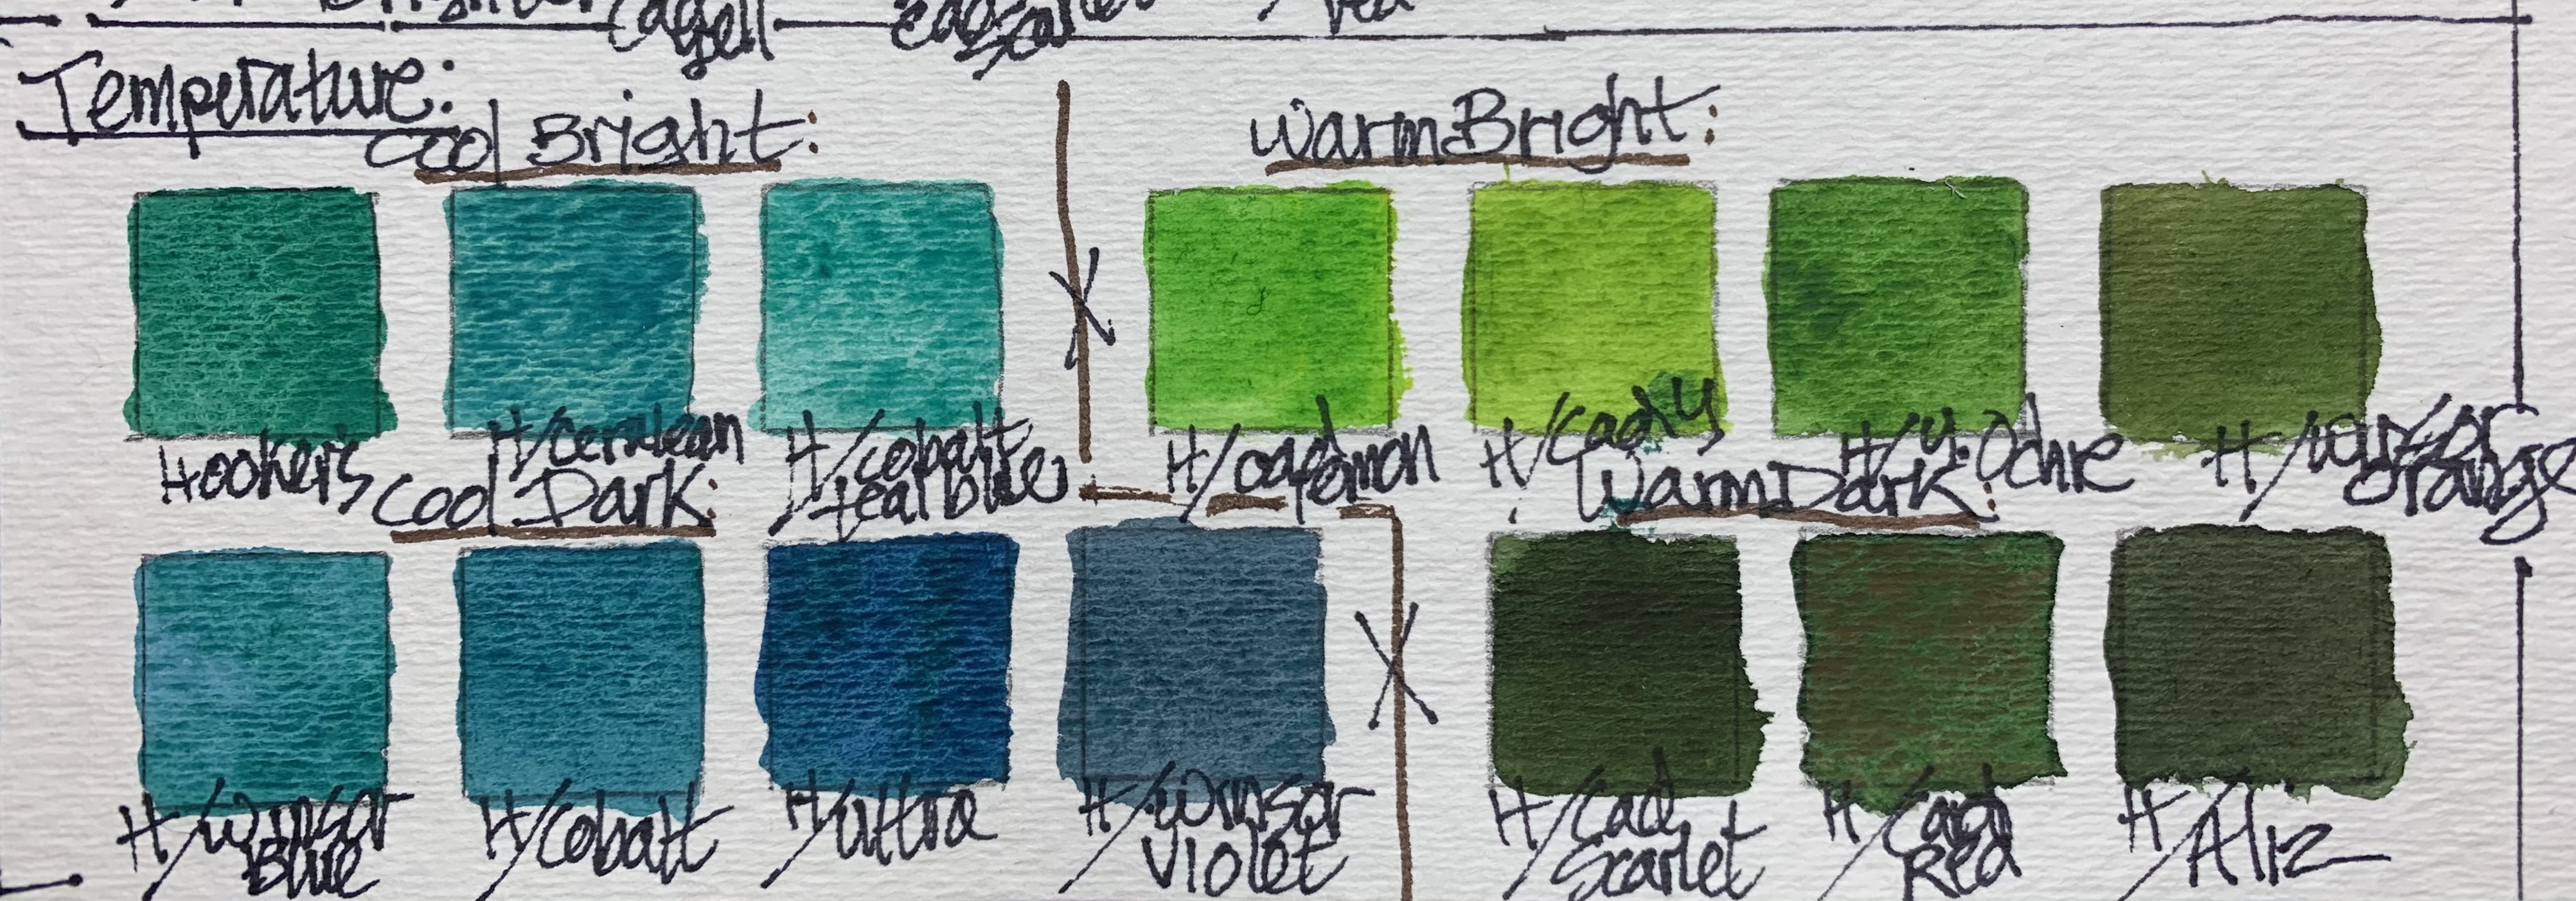 Cad
Scar
red
Temperature:
Cool Bright:
Warm Bright:
Hooker's
H/cerulean
H/cobalt
teal blue
H/cad lemon
H/Cad Y
H/Y. Ochre
H/winsor
orange
Cool Dark:
Warm Dark:
H/winsor
Blue
H/Cobalt
H/ultra
H/winsor
Violet
H/Cad
Scarlet
H/Cad
Red
H/Aliz